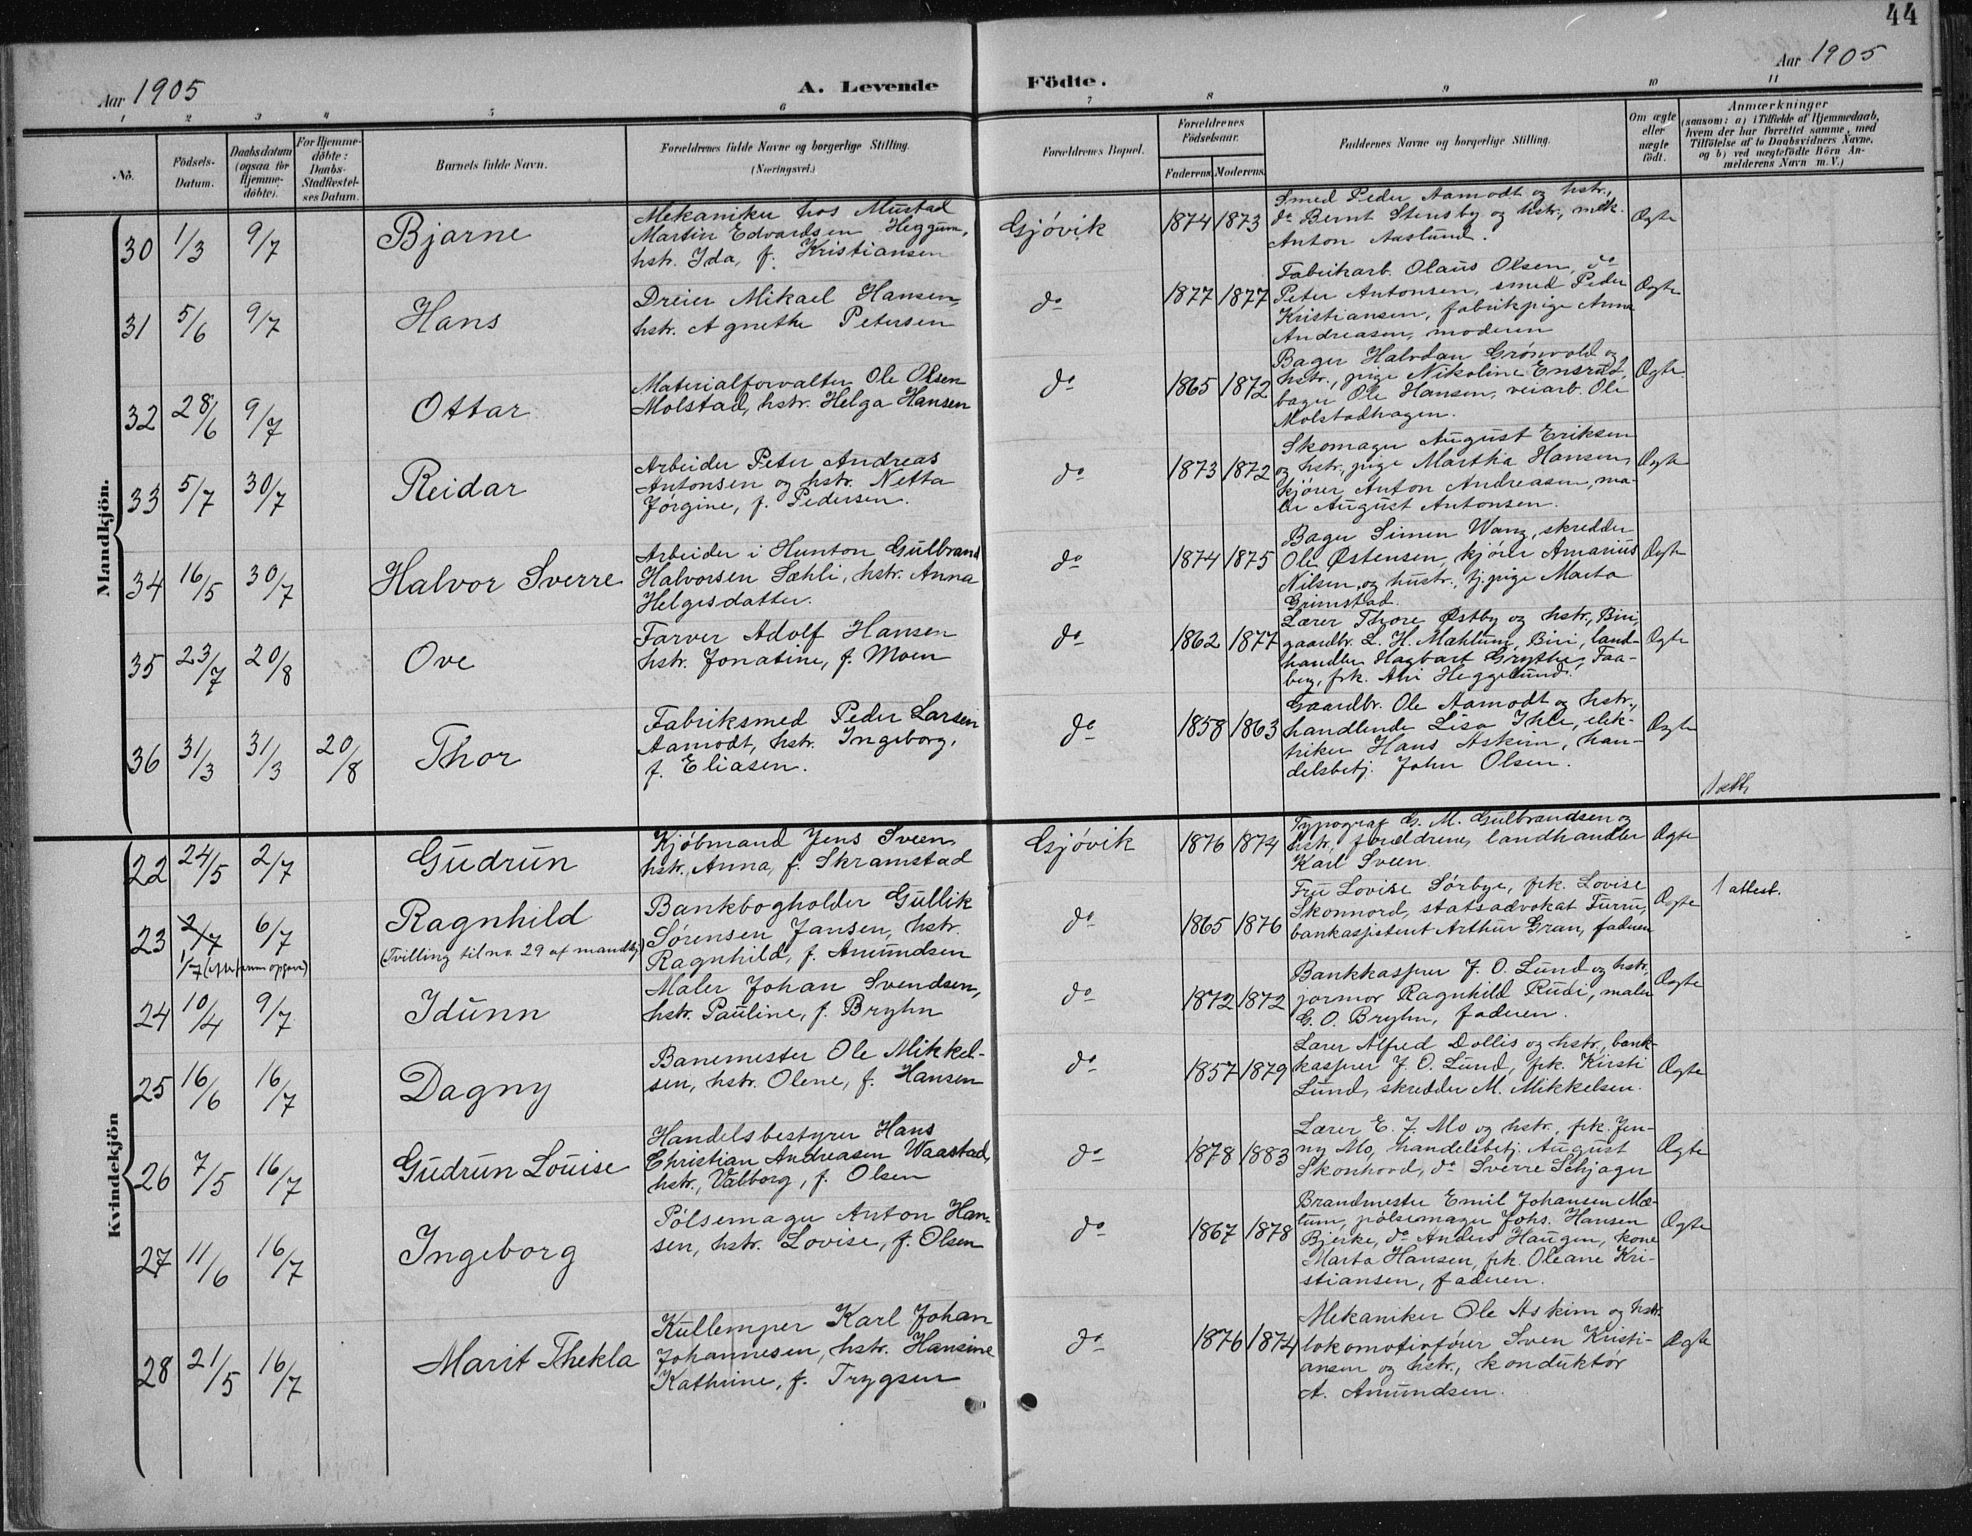 44
Aar 1905
A. Levende Födte.
Aar 1905
1 2 3 4 5 6 7 8 9 10 11
No.
Födsels-Datum.
Daabsdatum (ogsaa for Hjemme-döbte).
For Hjemme-döbte: Daabs-Stadfæstel-ses Datum.
Barnets fulde Navn.
Forældrenes fulde Navne og borgerlige Stilling.
(Næringsvei.)
Forældrenes Bopæl.
Forældrenes Födselsaar.
Faderens. Moderens.
Faddernes Navne og borgerlige Stilling.
Om ægte eller uægte födt.
Anmærkninger
(saasom: a) i Tilfælde af Hjemmedaab,
hvem der har forrettet samme, med
Tilföielse af to Daabsvidners Navne,
og b) ved uægtefödte Börn An-
melderens Navn m. V.)
Mandkjön.
30 1/3 9/7 Bjarne
Mekaniker hos Mustad
Martin Edvardsen Heggum,
hstr. Ida, f. Kristiansen
Gjövik 1874 1873
Smed Peder Aamodt og hstr.,
do Bernt Stensby og hstr., mek.
Anton Aaslund.
Ægte
31 5/6 9/7 Hans
Dreier Mikael Hansen,
hstr. Agnethe Petersen
do 1877 1877
Fabrikarb. Olaus Olsen, do
Peter Antonsen, smed Peder
Kristiansen, fabrikpige Anna
Andreasen, moderen
Ægte
32 28/6 9/7 Ottar
Materialforvalter Ole Olsen
Molstad, hstr. Helga Hansen
do 1865 1872
Bager Halvdan Grönvold og
hstr., pige Nikoline Ensrud,
bager Ole Hansen, veiarb. Ole
Molstadhagen.
Ægte
33 5/7 30/7 Reidar
Arbeider Peter Andreas
Antonsen og hstr. Netta
Jörgine, f. Pedersen.
do 1873 1872
Skomager August Eriksen
og hstr., pige Martha Hansen,
kjörer Anton Andreasen, ma-
ler August Antonsen.
Ægte
34 16/5 30/7 Halvor Sverre
Arbeider i Hunton Gulbrand
Halvorsen Sæhli, hstr. Anna
Helgesdatter.
do 1874 1875
Bager Simen Wang, skredder
Ole Østensen, kjörer Amarius
Nilsen og hustr., tj.pige Marta
Grimstad.
Ægte
35 23/7 20/8 Ove
Farver Adolf Hansen
hstr. Jonatine, f. Moen
do 1862 1877
Lærer Thore Østby og hstr., Biri,
gaardbr. L. H. Mæhlum, Biri, land-
handler Hagbart Grythe, Faa-
berg, frk. Heggelund.
Ægte
36 31/3 31/3 20/8 Thor
Fabriksmed Peder Larsen
Aamodt, hstr. Ingeborg,
f. Eliasen.
do 1858 1863
Gaardbr. Ole Aamodt og hstr.,
handlende Lisa Ihle, elek-
triker Hans Askim, han-
delsbetj. John Olsen.
Ægte
1 att.
Kvindekjön
22 24/5 2/7 Gudrun
Kjöbmand Jens Sveen,
hstr. Anna, f. Skramstad
Gjövik 1876 1874
Typograf G. M. Gulbrandsen og
hstr., forældrene, landhandler
Karl Sveen.
Ægte
23 2/7 6/7 Ragnhild
1/7 (efter opgave)
(Tvilling til no. 29 af mandkj.)
Bankbogholder Gullik
Sörensen Jansen, hstr.
Ragnhild, f. Amundsen
do 1865 1876
Fru Lovise Sörbye, frk. Lovise
Skonnord, statsadvokat Furu,
bankassistent Arthur Gran, faderen
Ægte
1 attest.
24 10/4 9/7 Idunn
Maler Johan Svendsen,
hstr. Pauline, f. Bryhn
do 1872 1872
Bankkasserer J. O. Lund og hstr.,
jormor Ragnhild Rudi, maler
G. O. Bryhn, faderen.
Ægte
25 16/6 16/7 Dagny
Banemester Ole Mikkel-
sen, hstr. Olene, f. Hansen
do 1857 1879
Lærer Alfred Dollis og hstr., bank-
kasserer J. O. Lund, frk. Kirsti
Lund, skredder M. Mikkelsen.
Ægte
26 7/5 16/7 Gudrun Louise
Handelsbestyrer Hans
Christian Andreasen Waastad,
hstr., Valborg, f. Olsen
do 1878 1883
Lærer E. J. Mo og hstr., frk. Jen-
ny Mo, handelsbetj. August
Skonhovd, do Sverre Schjager
Ægte
27 11/6 16/7 Ingeborg
Pölsemager Anton Han-
sen, hstr. Lovise, f. Olsen
do 1867 1878
Brandmester Emil Johansen Mæ-
lum, pölsemager Johs. Hansen
Bjerke, do Anders Haugen, kone
Marta Hansen, frk. Oleane Kri-
stiansen, faderen.
Ægte
28 21/5 16/7 Marit Thekla
Kullemper Karl Johan
Johannesen, hstr. Hansine
Kathrine, f. Trygsen
do 1876 1874
Mekaniker Ole Askim og hstr.
lokomotivförer Sven Kristi-
ansen og hstr., konduktör
A. Amundsen.
Ægte